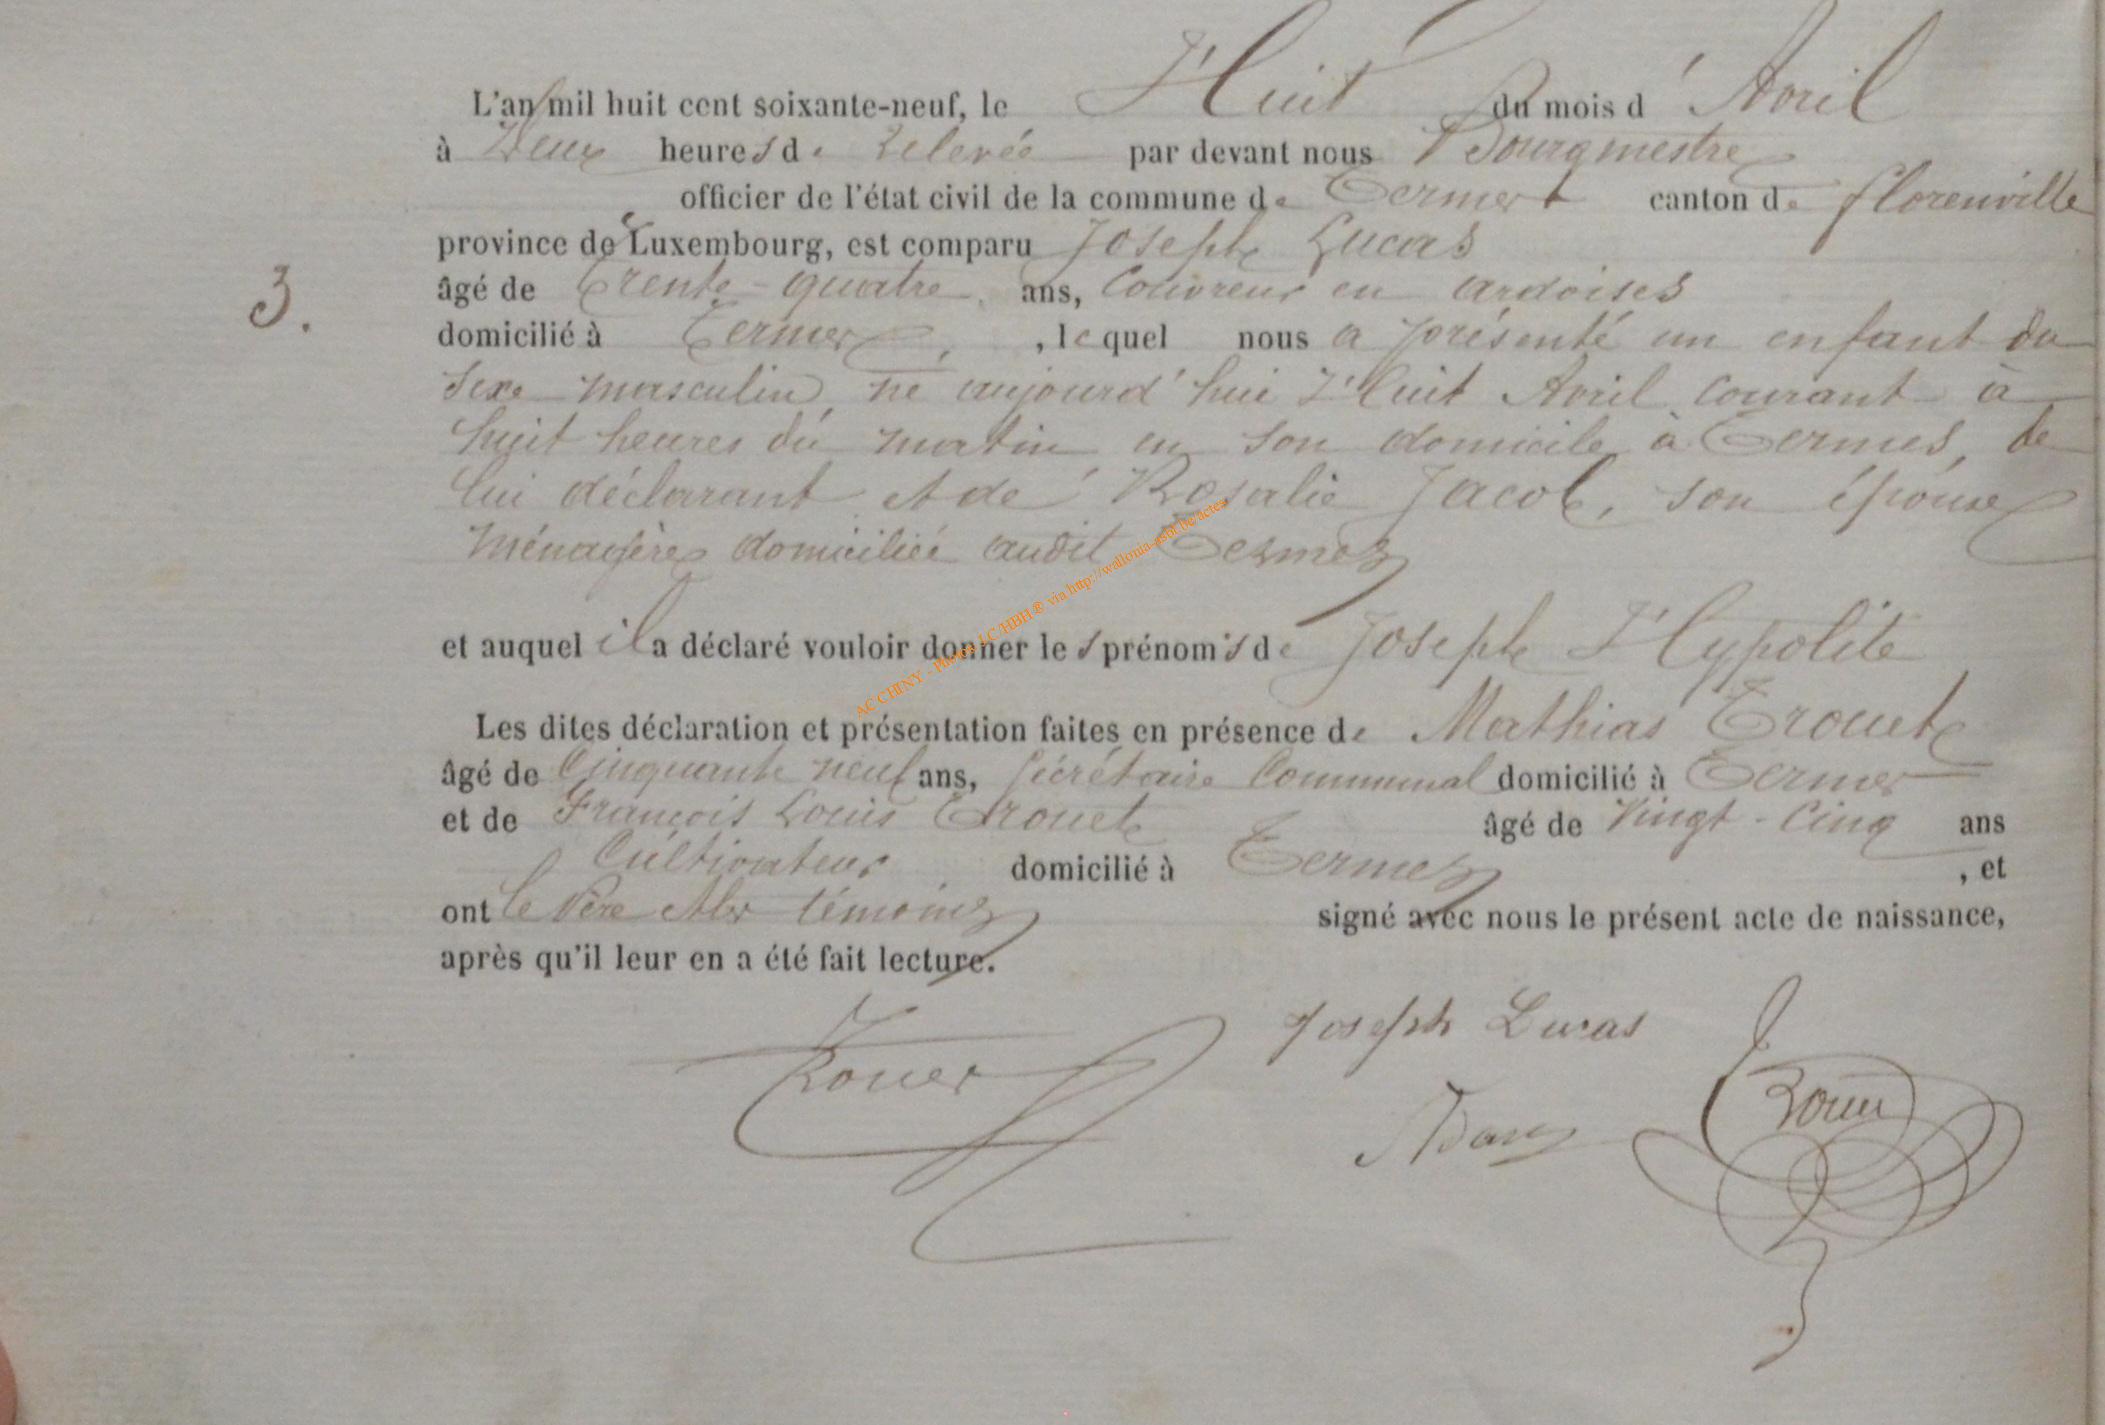 L'an mil huit cent soixante-neuf, le Huit du mois d' Avril
à Deux heures de relevée par devant nous Bourgmestre
officier de l'état civil de la commune de Termes canton de florenville
province de Luxembourg, est comparu Joseph Lucas
3. âgé de trente-quatre ans, Couvreur en ardoises
domicilié à Termes, , lequel nous a présenté un enfant du
sexe masculin, né aujourd'hui Huit Avril courant à
huit heures du matin en son domicile à Termes, de
lui déclarant et de Rosalie Jacob, son épouse
ménagère domiciliée audit Termes
et auquel il a déclaré vouloir donner les prénoms de Joseph Hypolite
Les dites déclaration et présentation faites en présence de Mathias Trouet
âgé de Cinquante neuf ans, Sécrétaire Communal domicilié à Termes
et de François Louis Trouet âgé de Vingt-Cinq ans
Cultivateur domicilié à Termes , et
ont le Père & les témoins signé avec nous le présent acte de naissance,
après qu'il leur en a été fait lecture.
Joseph Lucas
Trouet
AC CHINY - Photos LC/HBH ® via http://wallonia-asbl.be/actes